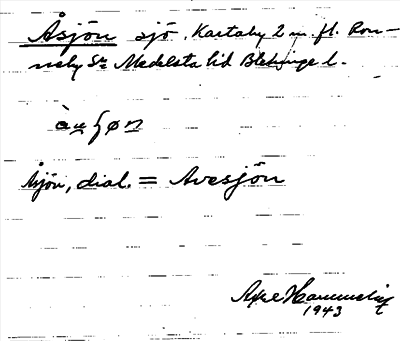 Åsjön sjö. Kartaby 2 m. fl. Ron-
neby Sn Medelsta hd Blekinge l.
Åsjön, dial. = Avesjön
Axel
1943